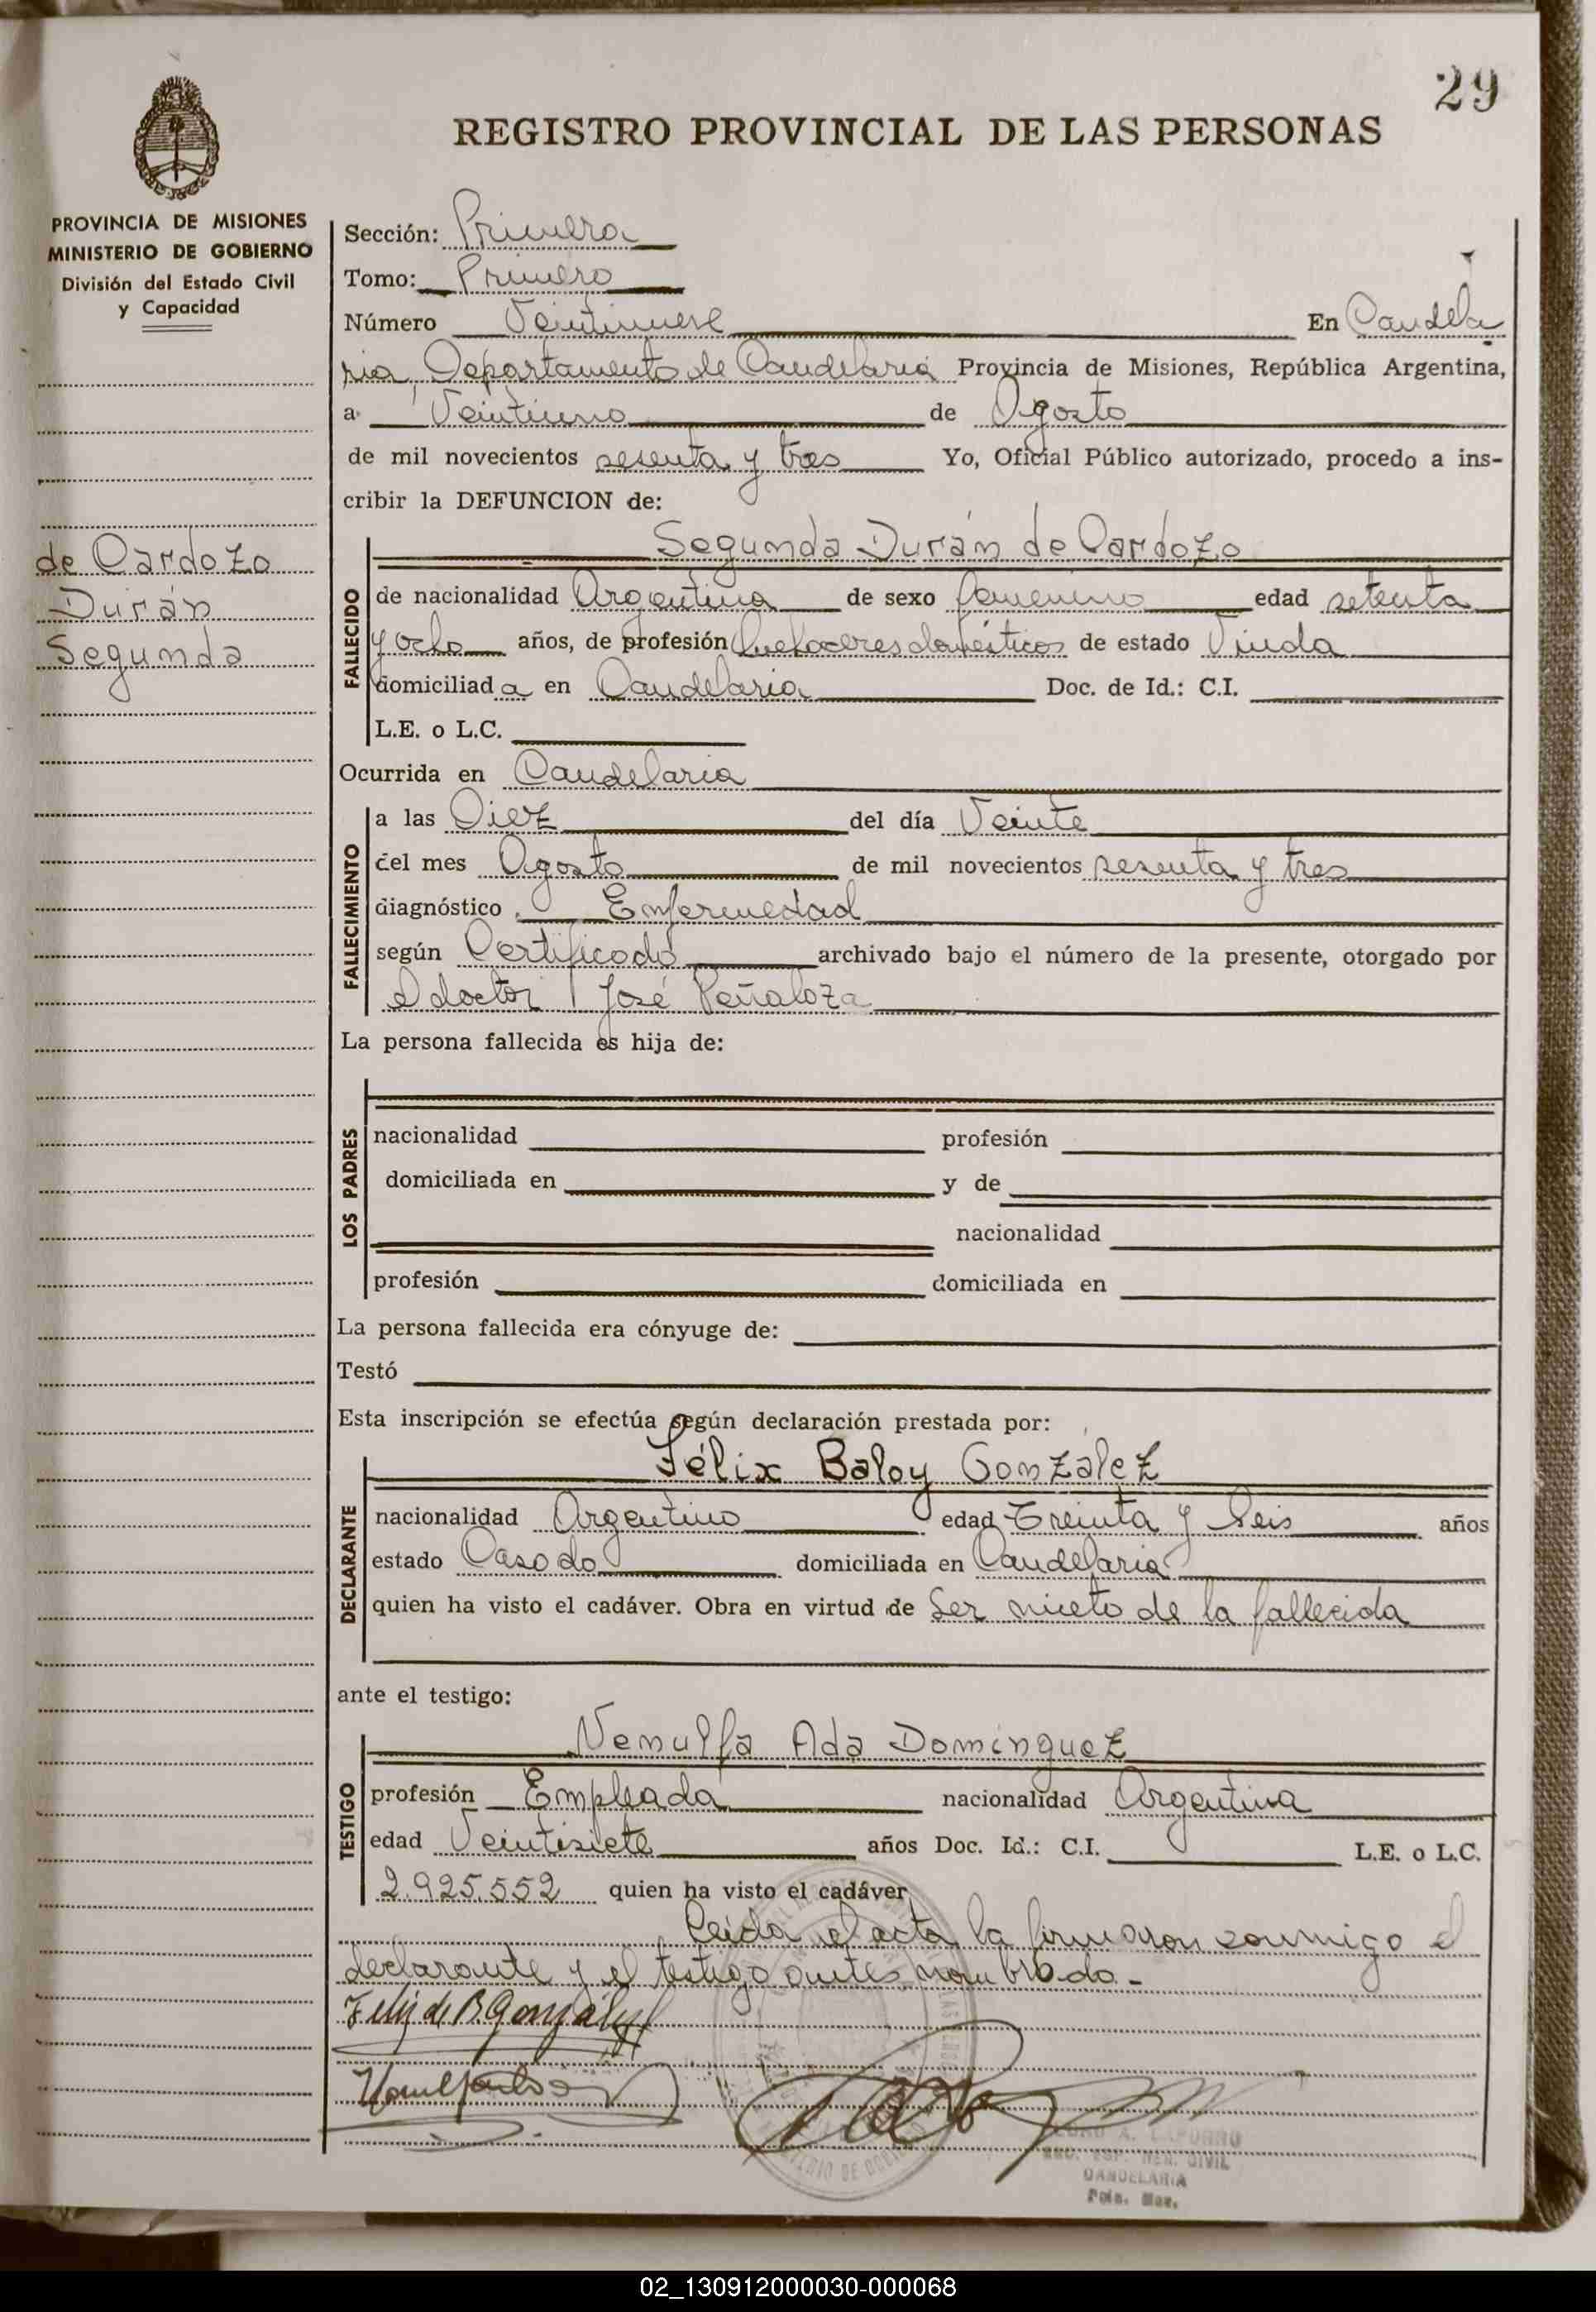 29
REGISTRO PROVINCIAL DE LAS PERSONAS
PROVINCIA DE MISIONES
MINISTERIO DE GOBIERNO
División del Estado Civil
y Capacidad
de Cardozo
Durán
Segunda
Sección: Primera
Tomo: Primero
Número Veintinueve En Candela
ria, Departamento de Candelaria Provincia de Misiones, República Argentina,
a Veintiuno de Agosto
de mil novecientos sesenta y tres Yo, Oficial Público autorizado, procedo a ins-
cribir la DEFUNCION de:
FALLECIDO
Segunda Durán de Cardozo
de nacionalidad Argentina de sexo femenino edad setenta
y ocho años, de profesión Quehaceres domésticos de estado Viuda
domiciliada en Candelaria Doc. de Id.: C.I.
L.E. o L.C.
Ocurrida en Candelaria
FALLECIMIENTO
a las Diez del día Veinte
del mes Agosto de mil novecientos sesenta y tres
diagnóstico Enfermedad
según Certificado archivado bajo el número de la presente, otorgado por
el doctor José Peñaloza
La persona fallecida es hija de:
LOS PADRES
nacionalidad profesión
domiciliada en y de
nacionalidad
profesión domiciliada en
La persona fallecida era cónyuge de:
Testó
Esta inscripción se efectúa según declaración prestada por:
DECLARANTE
Félix Baloy González
nacionalidad Argentino edad Treinta y Seis años
estado Casado domiciliada en Candelaria
quien ha visto el cadáver. Obra en virtud de Ser nieto de la fallecida
ante el testigo:
TESTIGO
Venulfa Ada Domínguez
profesión Empleada nacionalidad Argentina
edad Veintisiete años Doc. Id.: C.I. L.E. o L.C.
2.925.552 quien ha visto el cadáver
Leída el acta la firmaron conmigo el
declarante y el testigo antes nombrado.-
Felix de B. González
CANDELARIA
Pcia. Mnes.
02_130912000030-000068